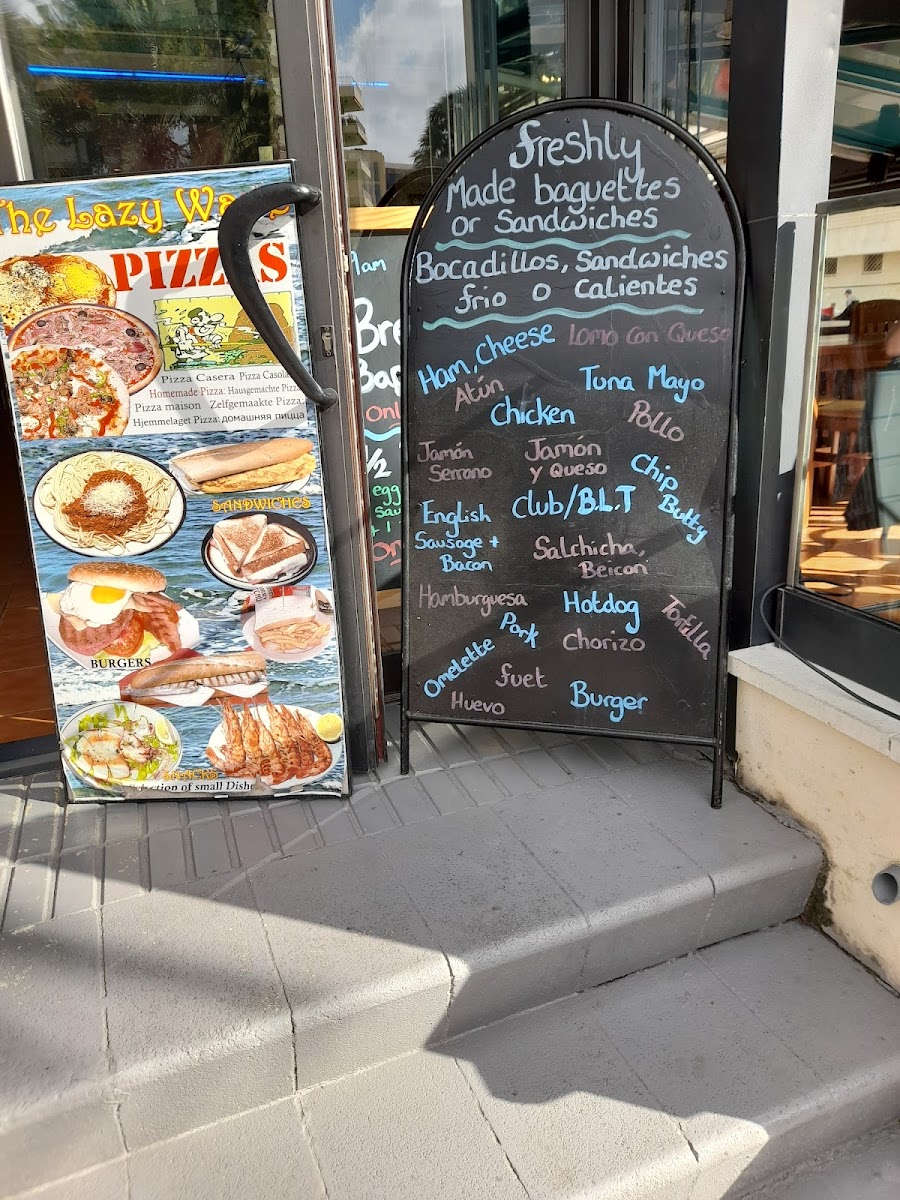 The Lazy
PIZZAS
Pizza Casera Pizza Casola
Homemade Pizza: Hausgemachte Pizza
Pizza maison Zelfgemaakte Pizza
Hjemmelaget Pizza: домашняя пицца
SANDWICHES
BURGERS
SNACKS
of small Dishe
9am
Onl
1/2
egg
Sau
+ 1
freshly
Made baguettes
or Sandwiches
Bocadillos, Sandwiches
frio o Calientes
Ham, Cheese
Lomo Con Queso
Atún
Tuna Mayo
Chicken
Pollo
Jamón
Serrano
Jamón
y Queso
Chip
Butty
English
Sausage +
Bacon
Club/B.L.T
Salchicha,
Beicon
Hamburguesa
Hotdog
Tortilla
Pork
Chorizo
Omelette
fuet
Huevo
Burger